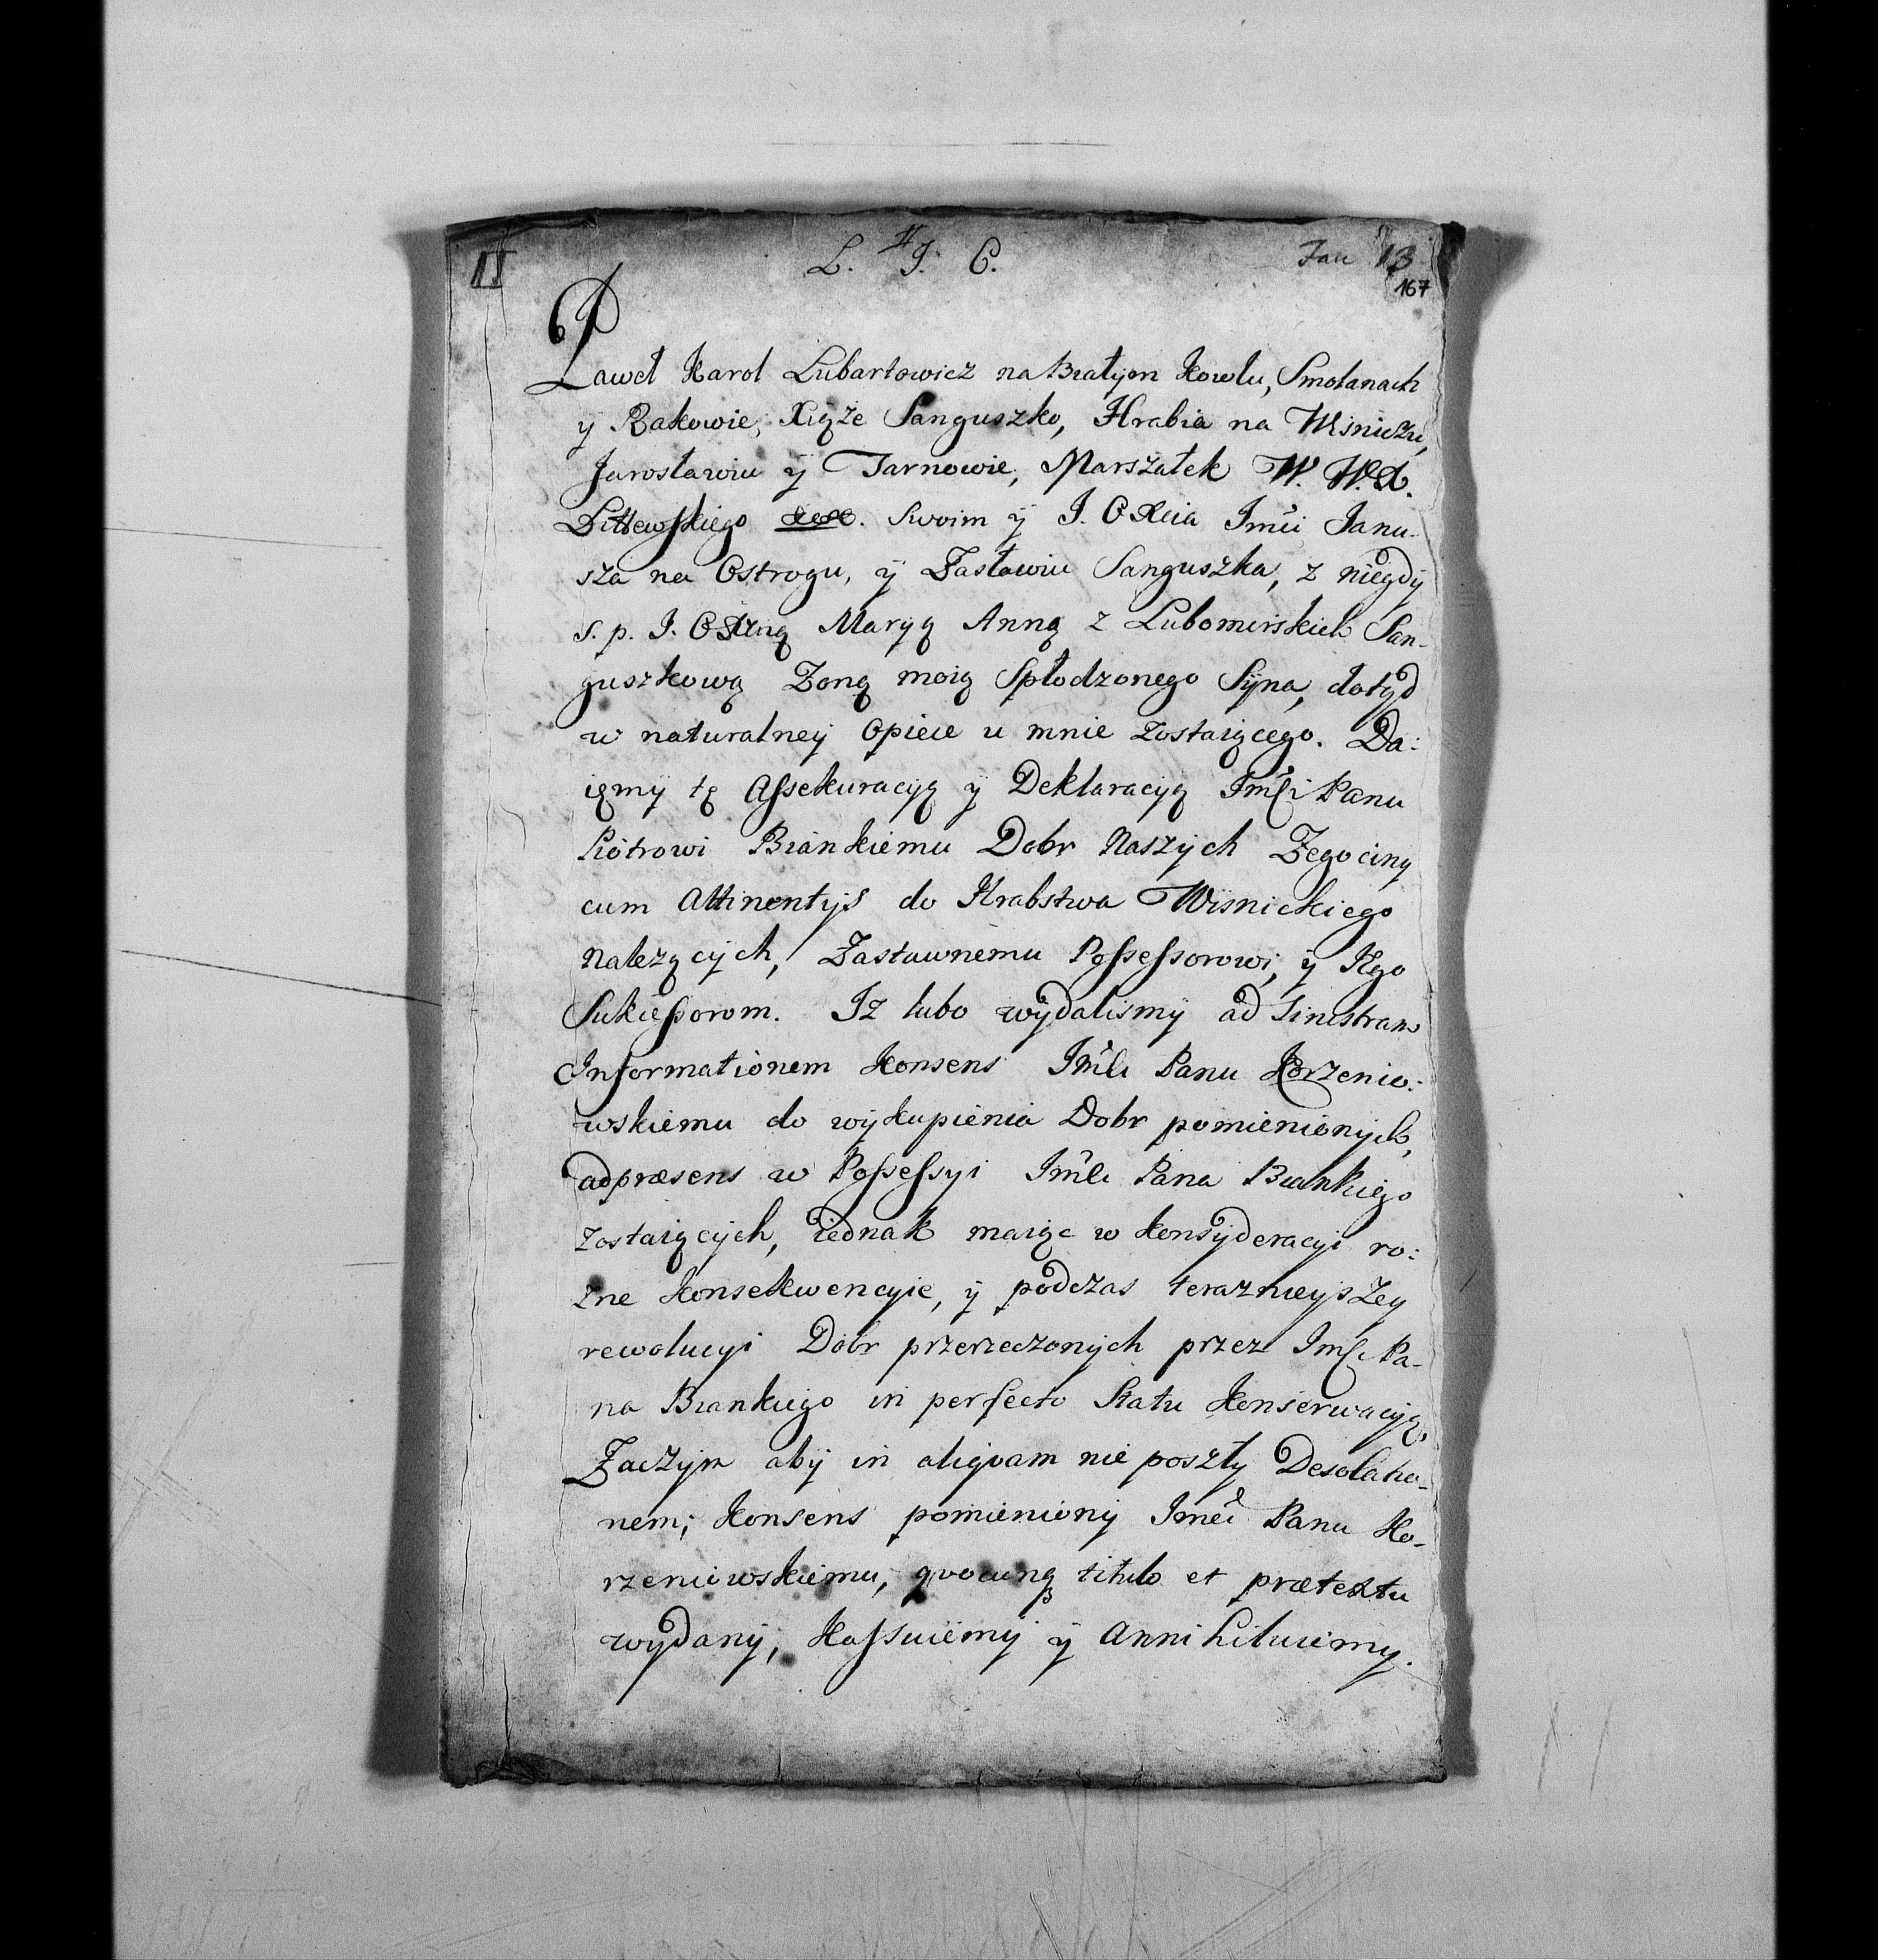 II L. J. C. Fau 13
167
Paweł Karol Lubartowicz na Białym Kowlu, Smolanach
y Rakowie, Xiąże Sanguszko, Hrabia na Wisniczu,
Jarosławiu ÿ Tarnowie, Marszałek W. W. X.
Littewskiego &c&c. Swoim ÿ J. O Xcia Jmći Janu-
sza na Ostrogu, ÿ Zasławiu Sanguszka, z niegdÿ
s. p. J. O Xzną Maryą Anną z Lubomirskich San-
guszkową Zoną moią Spłodzonego Sÿna, dotąd
w naturalneÿ Opiece u mnie zostaiącego. Da:
ięmÿ tę Assekuracyą y Deklaracyą Jmći Panu
Piótrowi Biankiemu Dobr Naszÿch Zegociny
cum Attinentÿs do Hrabstwa Wisnickiego
należącÿch, Zastawnemu Possessorowi, ÿ Jego
Sukcessorom. Iz lubo wÿdalismÿ ad Sinistram
Informationem Konsens Jmći Panu Korzenio:
wskiemu do wÿkupienia Dobr pomienionÿch,
ad præsens w Possessyi Jmći Pana Biankiego
zostaiącÿch, iednak maiąc w Konsÿderacyi ro:
zne Konsekwencyie, ÿ podczas terazniejszey
rewolucyi Dobr przerzeczonÿch przez Jmći Pa-
na Biankiego in perfecto Statu Konserwacyą,
Zaczÿm abÿ in aliqvam nie poszłÿ Desolatio-
nem; Konsens pomienionÿ Jmći Panu Ko-
rzeniowskiemu, qvocunq titulo et prætextu
wÿdanÿ, Kassuiemÿ ÿ Annihiluiemy.